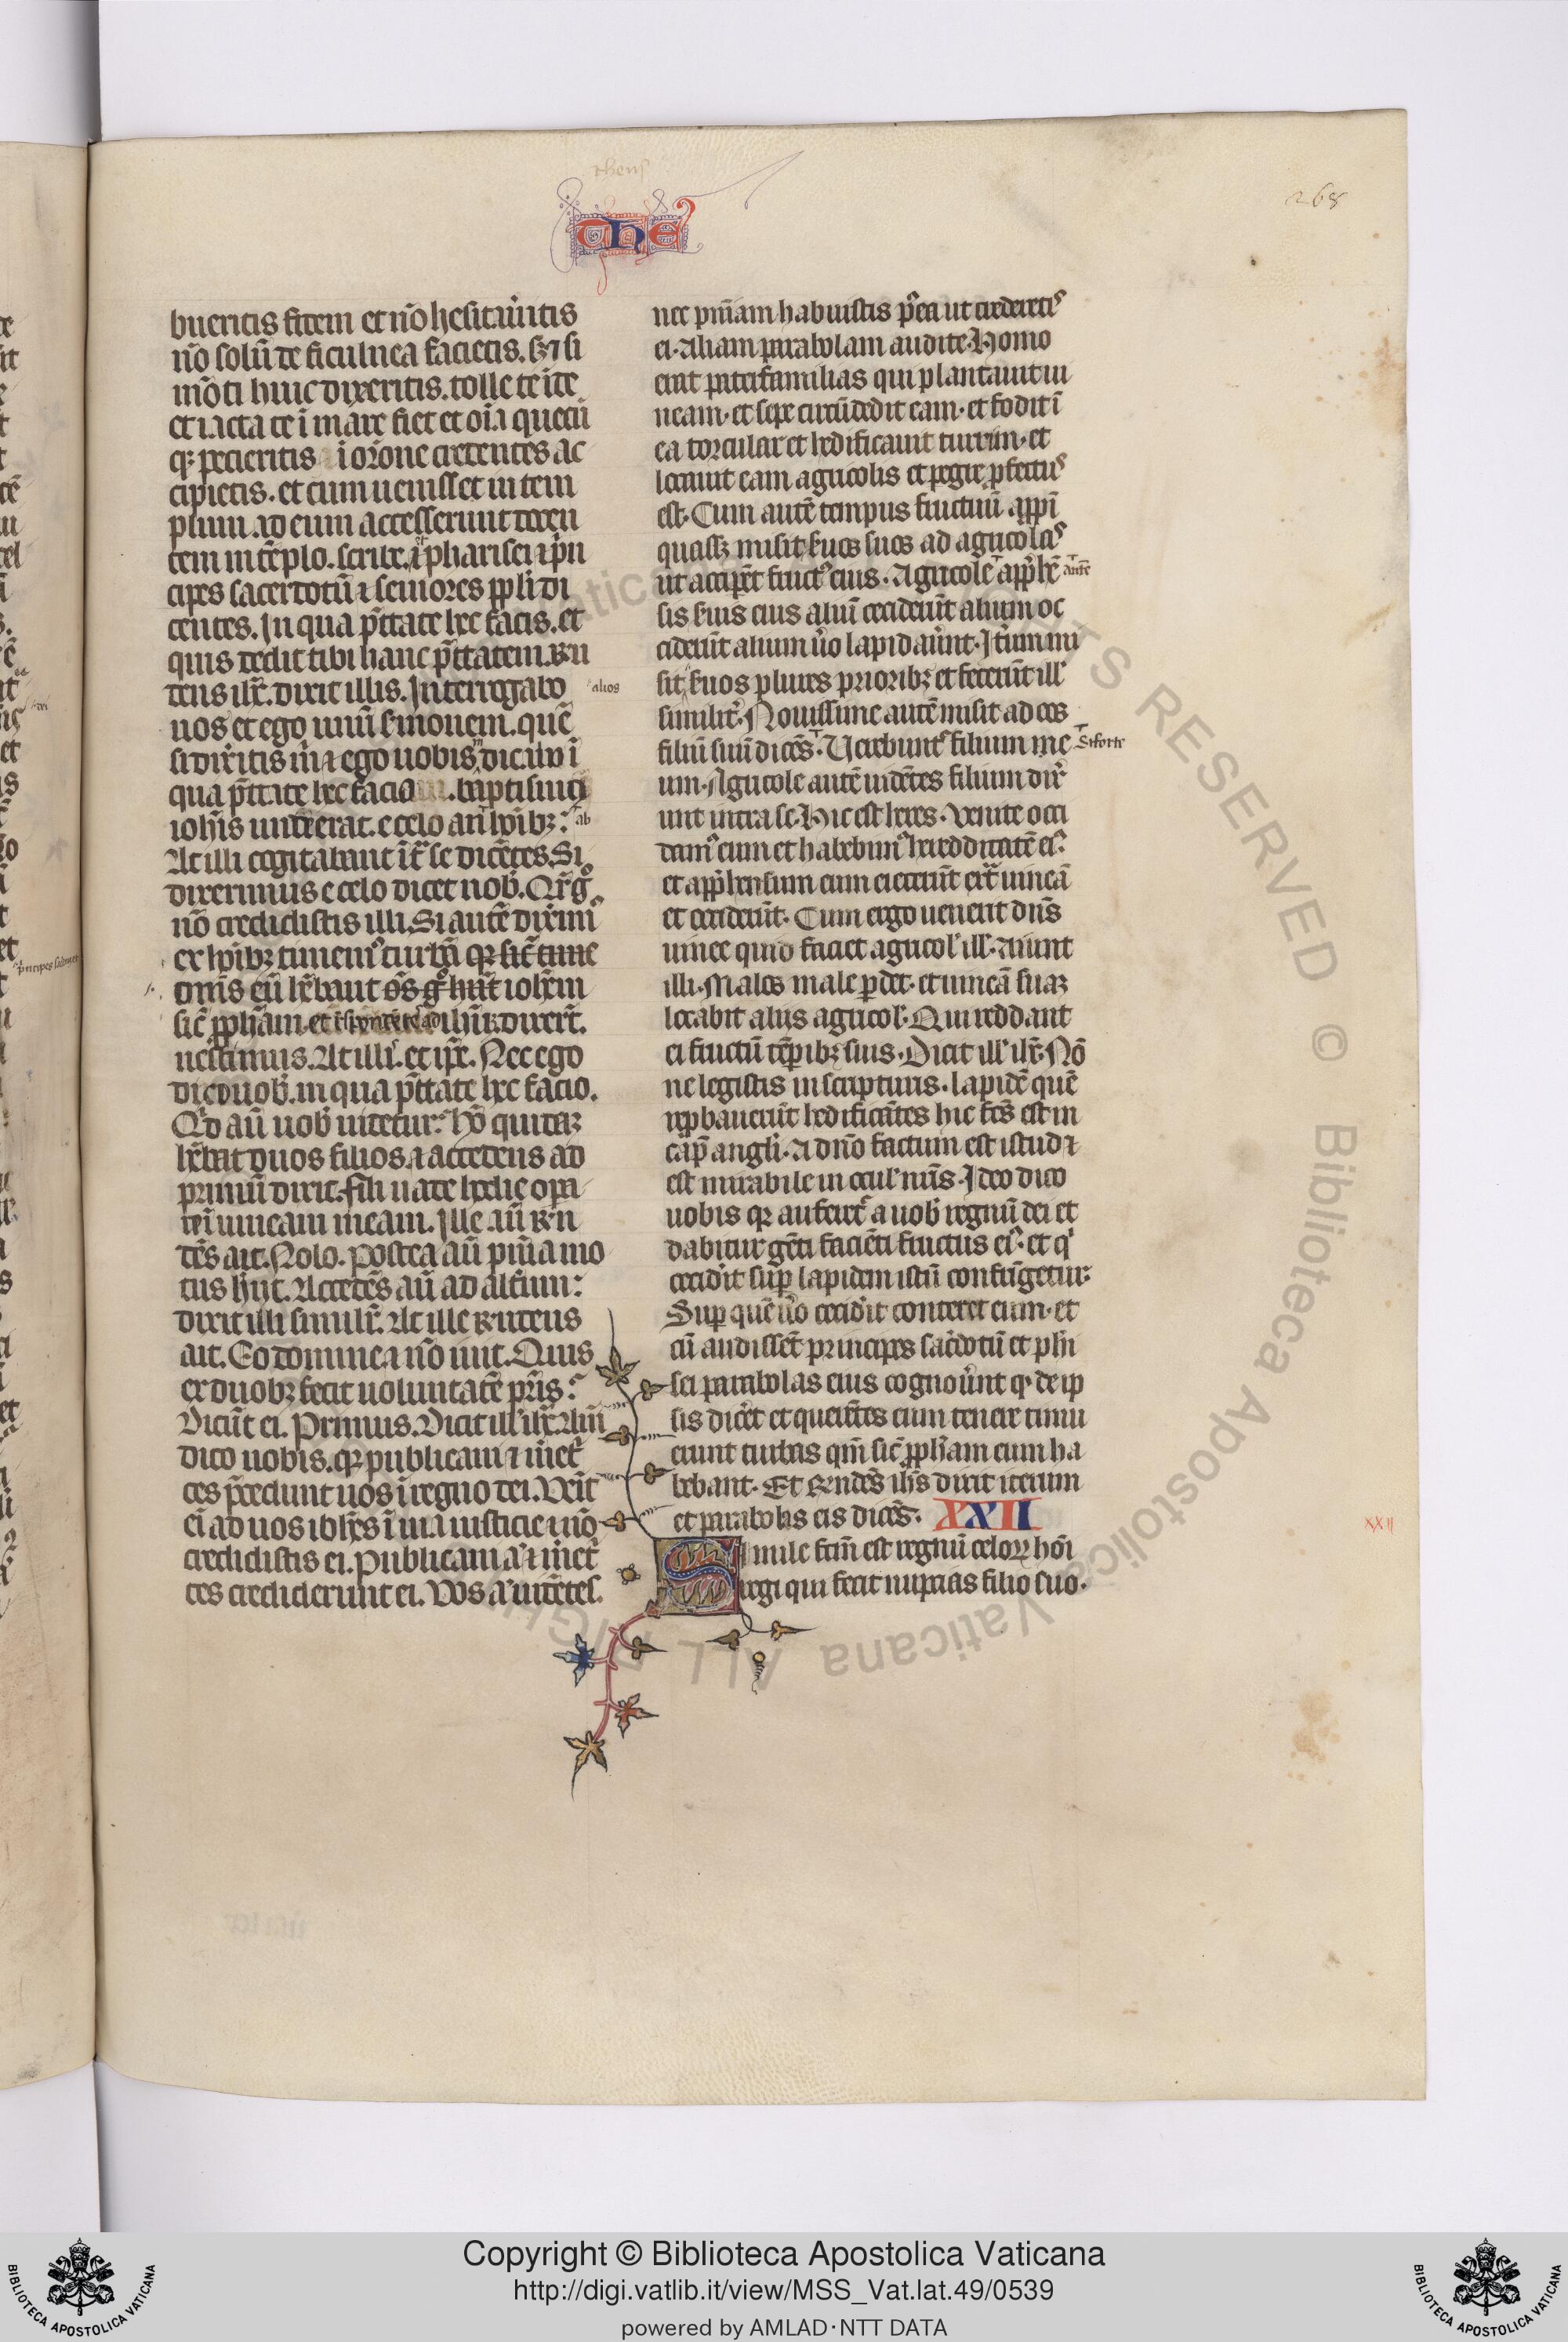 thens
THE
268
bueritis fidem et nō hesitaúitis
nō solū de ficulnea facietis. sʒ ⁊ si
mōti huic dixeritis. tolle te īde
et iacta te ī mare fiet et oīa quecū
qꝫ pecieritis ī orōne credentes ac
cipietis. et cum uenisset in tem
plum. ad eum accesserunt docen
tem in tēplo. scribe. ⁊ pharisei ⁊ prin
cipes sacerdotū ⁊ seniores ppli di
centes. In qua ptt̄ate hec facis. et
quis dedit tibi hanc ptt̄atem. Rn
dens ihc̄. dixit illis. Interrogabo
uos et ego unū sermonem. quē
si dixitis m ⁊ ego uobis dicam ī
qua ptt̄ate hec facio. baptismus
ioh̄is unde erat. e celo an hoībꝫ?
At illi cogitabant īt̄ se dicētes. Si
dixerimus e celo dicet nob̄. Qr̄ gͦ
nō credidistis illi. Si autē dixim
ex hoībꝫ timemꝰ turbā
om̄s eū hēbant ioh̄em
sic̄ pph̄am. et ihū dixert̄.
nescimus. At illi. et ip̄e. Nec ego
dico uob̄. in qua ptt̄ate hec facio.
Qd aū uob̄ uidetur? hō quidaꝫ
hēbat duos filios. ⁊ accedens ad
primū dixit. fili uade hodie opa
re ī uineam meam. Ille aū rn
dēs ait. Nolo. postea aū pn̄ia mo
tus hīit. Accedēs aū ad alterum:
dixit illi similr̄. At ille rndens
ait. Eo domine ⁊ nō iuit. Quis
ex duobꝫ fecit uoluntatē pr̄is?
Dicūt ei. Primus. Dicit ill ihc̄. Am̄
dico uobis. qꝫ publicani ⁊ meret
ces p̄cedunt uos ī regno dei. Ueīt
ei ad uos ioh̄es ī uia iusticie ⁊ nō
credidistis ei. Publicani a ⁊ meret
ces crediderunt ei. Uos a uidētes.
alios
ab
nec pn̄iam habuistis pꝰea ut crederetis
ei. Aliam parabolam audite. Homo
erat paterfamilias qui plantauit ui
neam. et sepe circūdedit eam. et fodit ī
ea torcular et hedificauit turrim. et
locauit eam agricolis et pegre pfectus
est. Cum autē tempus fructuū appi
quasꝫ misit suos suos ad agricolas
ut acciperēt fructꝰ eius. Agricole appͥhē
sis suis eius aliū ceciderūt alium oc
ciderūt alium úo lapidaúnt. Itum mi
sit suos plures prioribꝫ et fecerūt ill
similit. Nouissime autē misit ad eos
filiū suū dicēs. Uerebunt filium me
um. Agricole autē uidētes filium dix̄
unt intra se. Hic est heres. Uenite occi
damꝰ eum et habebimꝰ heredditatē eiꝰ.
et appͥhensum eum eiecerūt extͣ uineā
et occiderūt. Cum ergo uenerit dn̄s
uinee quid faciet agricol ill. Aiunt
illi. Malos male pdet. et uineā suaꝫ
locabit aliis agricol. Qui reddant
ei fructū tēpibꝫ suis. Dicit ill ihc̄. Nō
ne legistis in scripturis. lapidē quē
repbauerūt hedificātes hic fcs̄ est in
cap̄ anguli. A dn̄o factum est istud ⁊
est mirabile in ocul nr̄is. Ideo dico
uobis qꝫ auferet a uob̄ regnū dei et
dabitur gēti faciēti fructus eiꝰ. et qͥ
cecidit sup lapidem istū confrīgetur:
Sup quē úo ceciderit conteret eum. et
cū audissēt principes sacerdotū et phri
sei parabolas eius cognoúnt qꝫ de ip
sis dicēt et querētes eum tenere timu
erunt turbas qm̄ sic̄ pph̄am eum ha
bebant. Et rn̄dēs ih̄s dixit iterum
et parabolis eis dicēs. XXII
Simile fcm̄ est regnū celoꝝ hoī
regi qui fecit nuptias filio suo.
autē
Si forte
XXII
© Biblioteca Apostolica Vaticana ALL RIGHTS RESERVED
Copyright © Biblioteca Apostolica Vaticana
http://digi.vatlib.it/view/MSS_Vat.lat.49/0539
powered by AMLAD·NTT DATA
BIBLIOTECA APOSTOLICA VATICANA
BIBLIOTECA APOSTOLICA VATICANA